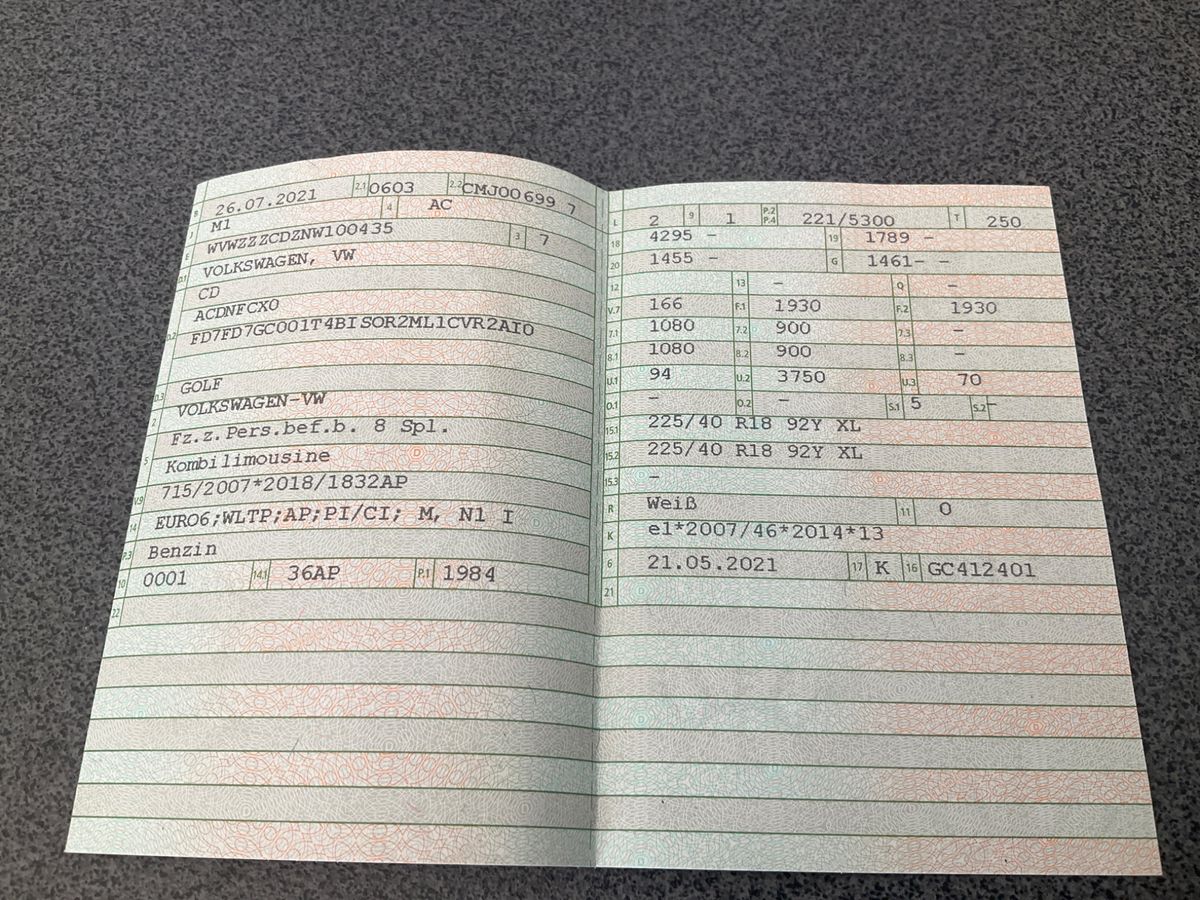 B 26.07.2021 2.1 0603 2.2 CMJ00699 7
J M1 4 AC
E WVWZZZCDZNW100435 3 7
D.1 VOLKSWAGEN, VW
CD
ACDNFCX0
D.2 FD7FD7GC001T4BISOR2ML1CVR2AI0
D.3 GOLF
2 VOLKSWAGEN-VW
Fz.z.Pers.bef.b. 8 Spl.
5 Kombilimousine
V.9 715/2007*2018/1832AP
14 EURO6;WLTP;AP;PI/CI; M, N1 I
P.3 Benzin
10 0001 14.1 36AP P.1 1984
22
L 2 9 1 P.2 P.4 221/5300 T 250
18 4295 - 19 1789 -
20 1455 - G 1461- -
12 13 - Q -
V.7 166 F.1 1930 F.2 1930
7.1 1080 7.2 900 7.3 -
8.1 1080 8.2 900 8.3 -
U.1 94 U.2 3750 U.3 70
O.1 - O.2 - S.1 5 S.2 -
15.1 225/40 R18 92Y XL
15.2 225/40 R18 92Y XL
15.3 -
R Weiß 11 0
K e1*2007/46*2014*13
6 21.05.2021 17 K 16 GC412401
21